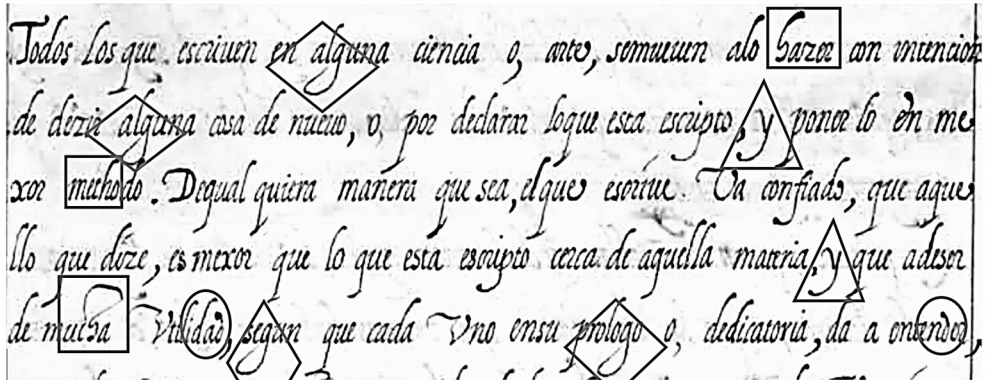 Todos los que escriuen en alguna ciencia o, arte, semueuen alo hazer con intencion
de dezir alguna cosa de nueuo, o, por declarar loque esta escripto, y poner lo en me
xor muchodo. Dequal quiera manera que sea, elque escriue. Va confiado, que aque
llo que dize, es mexor que lo que esta escripto cerca de aquella materia, y que adeser
de mucha Vtilidad, segun que cada Vno ensu prologo o, dedicatoria, da a entender,